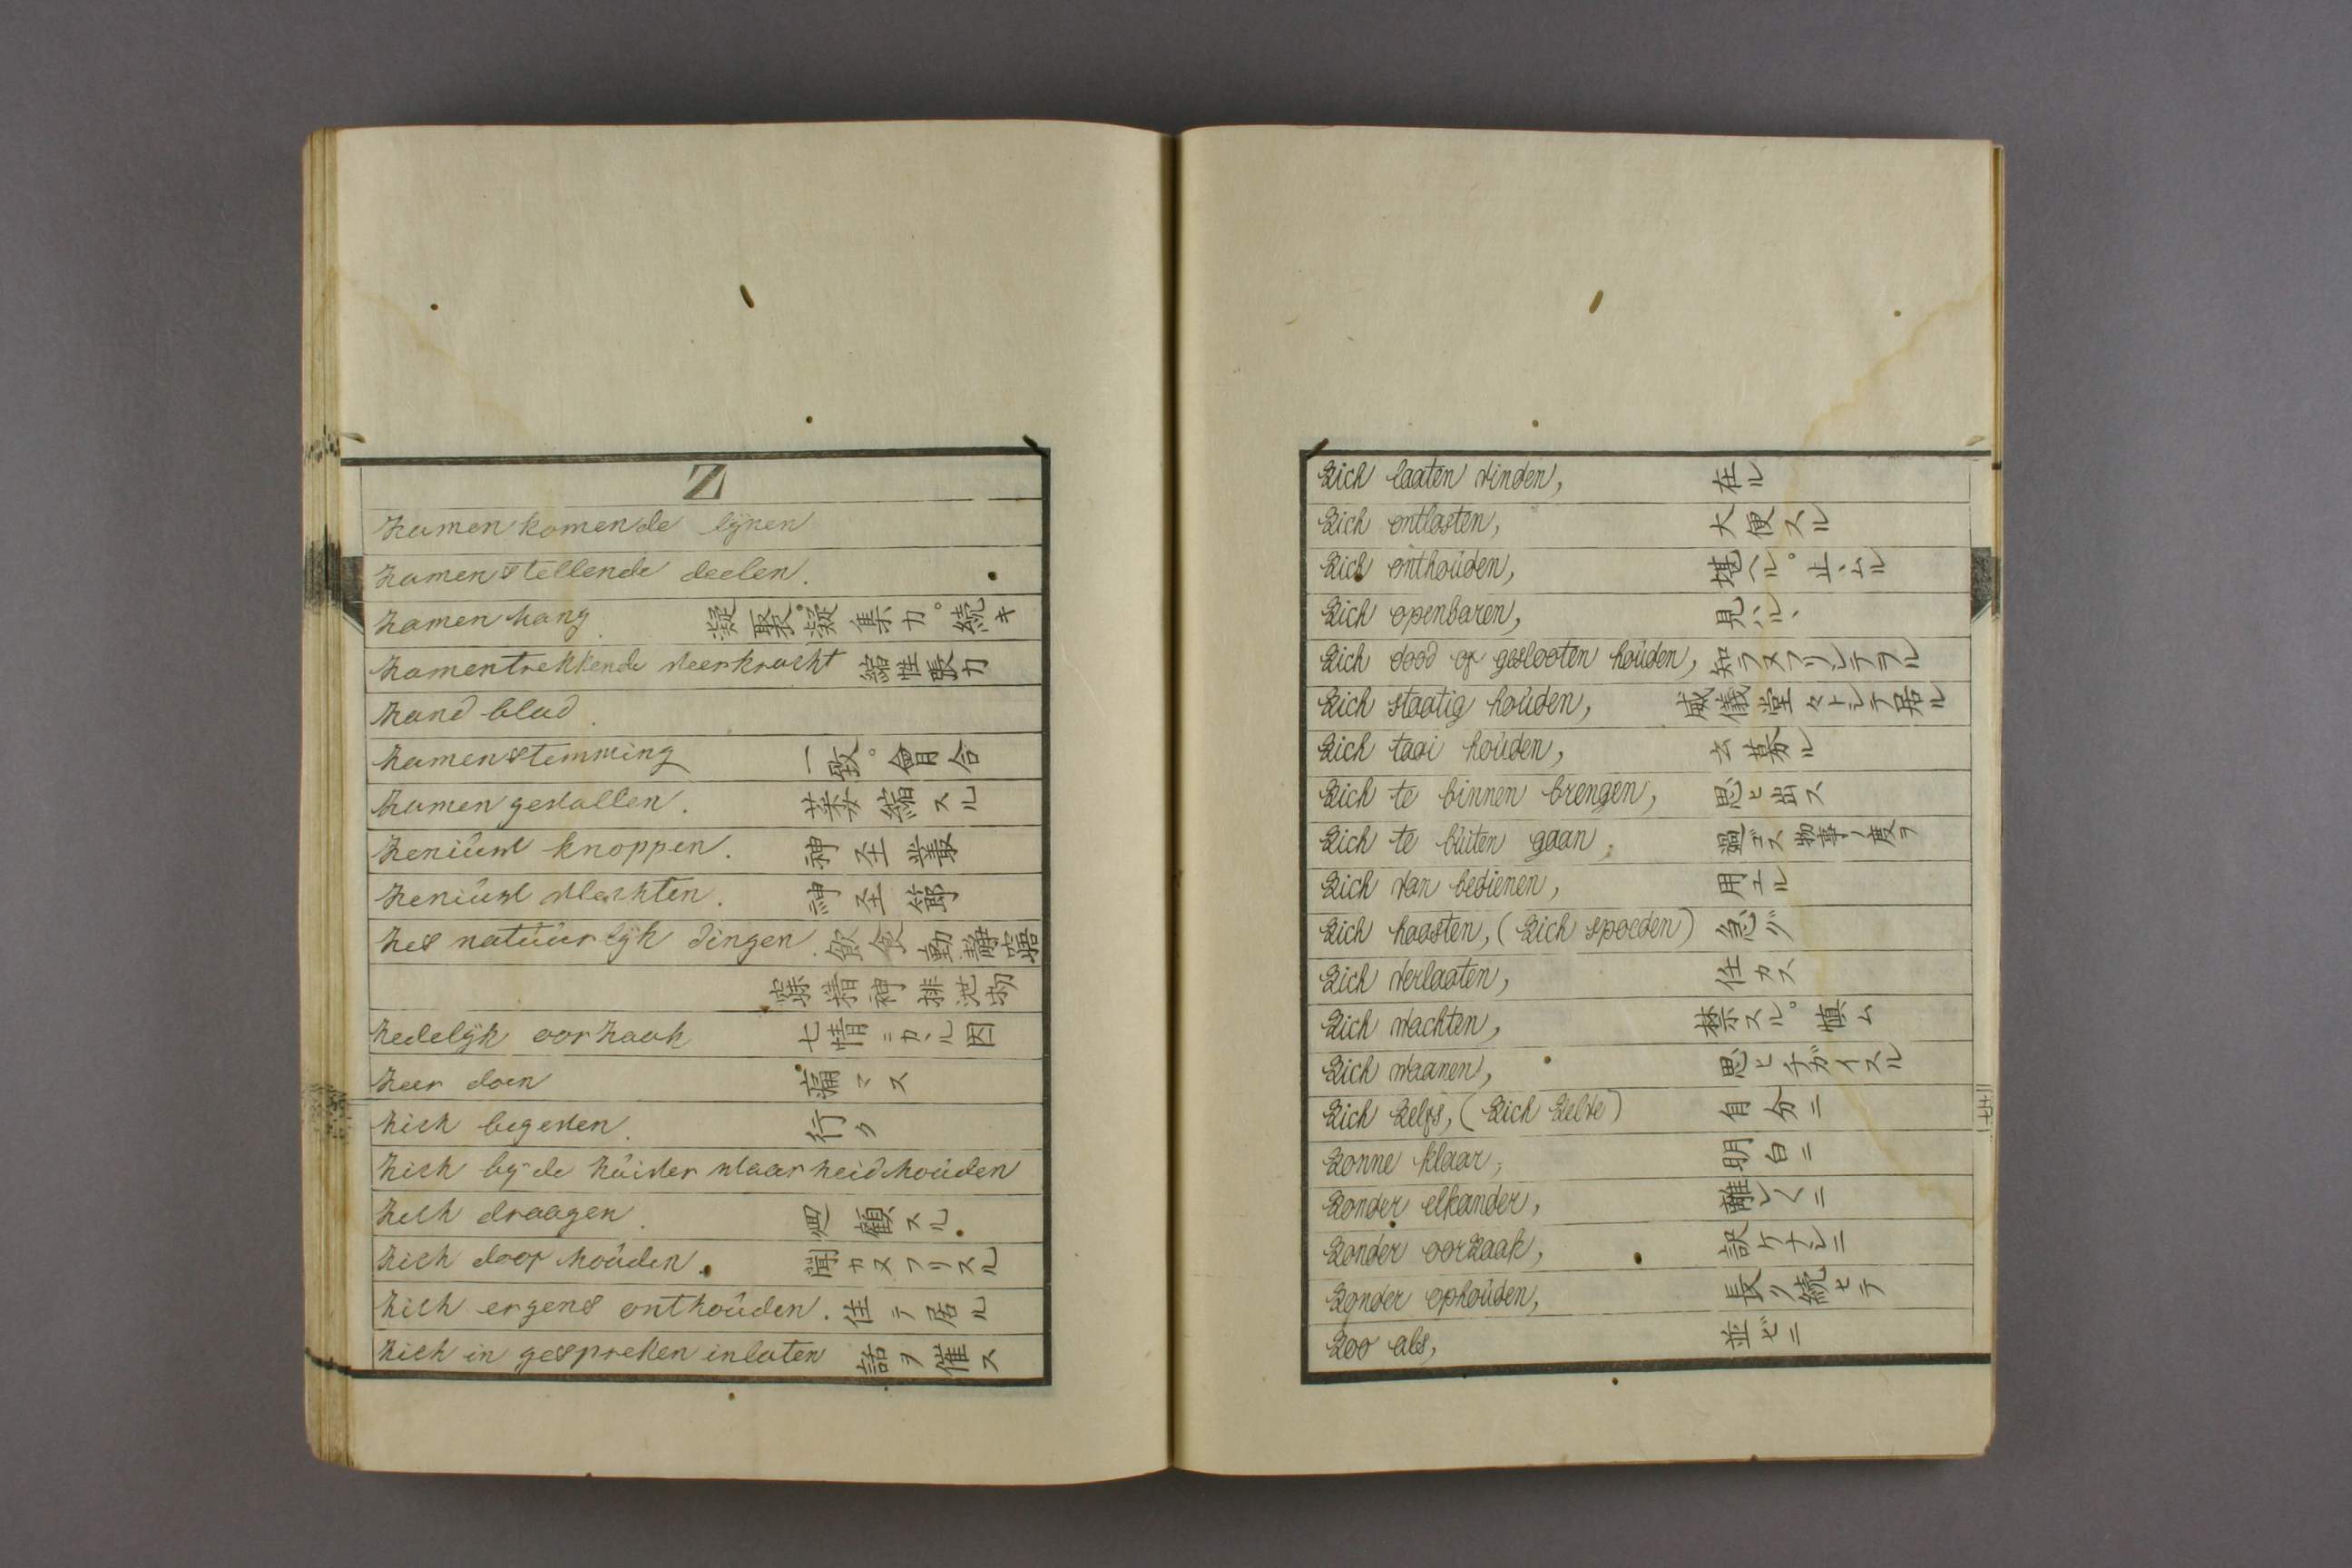 Z
Zamen komende lynen
Zamenstellende deelen.
Zamen hang. 凝聚。凝集力。続キ
Zamentrekkende veerkracht 縮性張力
Zand blad.
Zamenstemming 一致。會合
Zamen gevallen. 萎縮スル
Zenúwl knoppen. 神圣叢
Zenúwl vlechten. 神圣節
Zes natúúrlyk dingen. 飲食動静寤
寐精神排泄物
Zedelyk oorzaak 七情ニカヽル因
Zeer doen 痛マス
Zich begeven. 行ク
Zich by de Zúiver waarheid hoúden
Zich draagen. 廻顧スル
Zich doof hoúden. 聞カヌフリスル
Zich ergens onthoúden. 住テ居ル
Zich in gespreken inlaten 話ヲ催ス
Zich laaten vinden, 在ル
Zich ontlasten, 大便スル
Zich onthoúden, 堪ヘル。止ムル
Zich openbaren, 見ハルヽ
Zich dood of geslooten hoúden, 知ラヌフリシテヲル
Zich staatig hoúden, 威儀堂々トシテ居ル
Zich taai hoúden,
Zich te binnen brengen, 思ヒ出ス
Zich te búiten gaan, 過ゴス物事ノ度ヲ
Zich van bedienen, 用ユル
Zich haasten, (Zich spoeden) 急グ
Zich verlaaten, 任カス
Zich wachten, 禁スル。慎ム
Zich waanen, 思ヒチガイスル
Zich Zelfs, (Zich Zelve) 自分ニ
Zonne klaar, 明白ニ
Zonder elkander, 離レ〱ニ
Zonder oorzaak, 訳ケナシニ
Zonder ophoúden, 長ク続ヒテ
Zoo als, 並ビニ